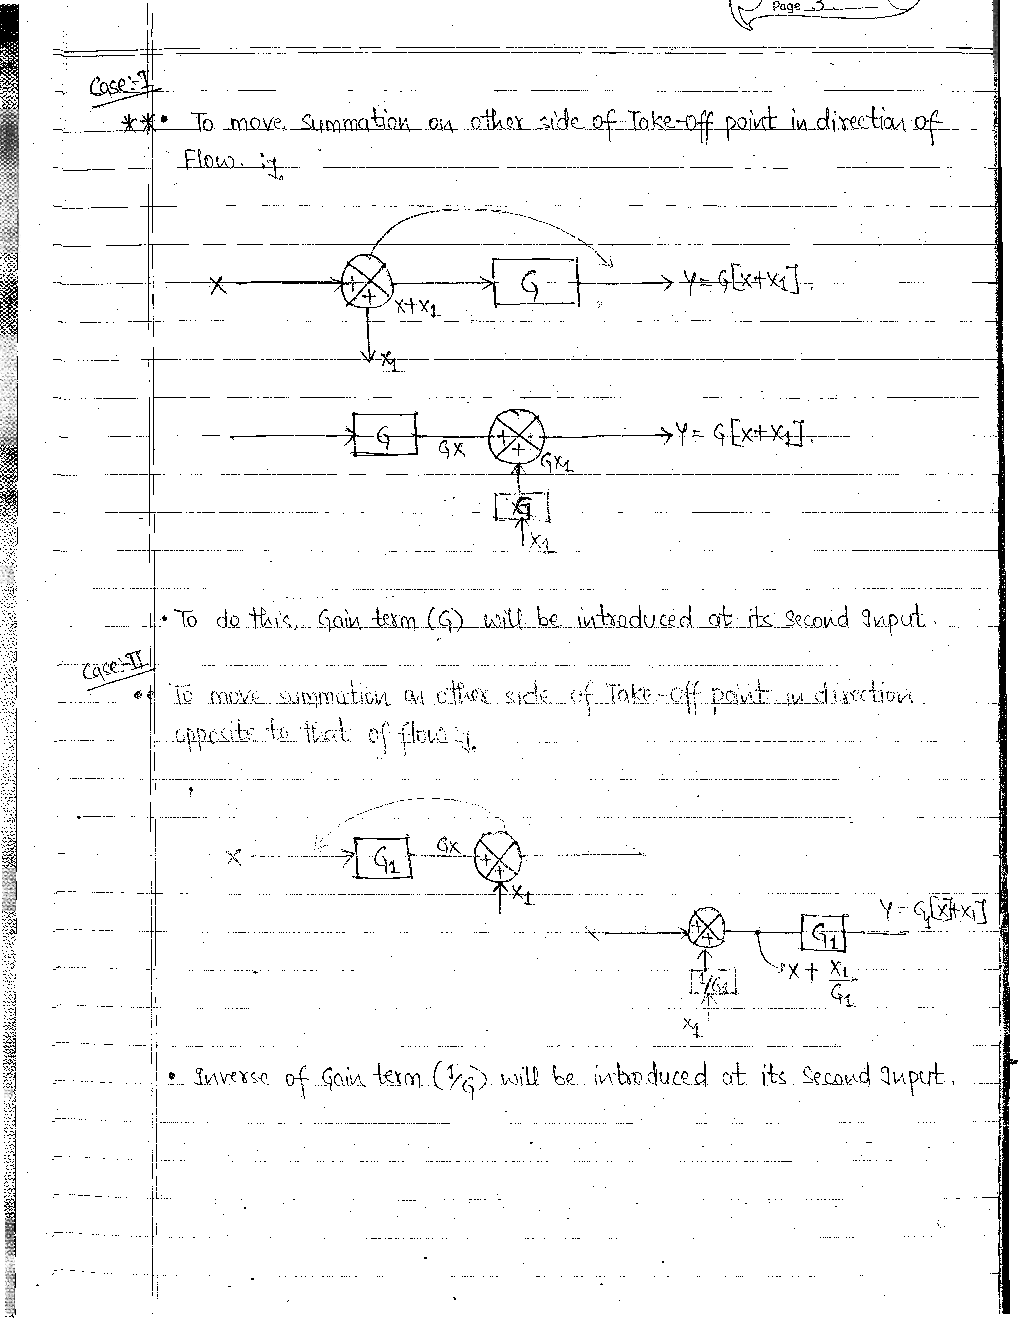 Page 3
Case:-I
**• To move summation on other side of Take-off point in direction of
Flow. :-
X + + X+X1 G Y = G[X+X1].
X1
G GX + + GX1 Y = G[X+X1].
G
X1
• To do this, Gain term (G) will be introduced at its second Input.
Case:-II
•• To move summation on other side of Take-off point in direction
opposite to that of flow :-
X G1 GX + +
X1
+ + G1 Y = G1[X+X1]
1/G1 X + X1/G1
X1
• Inverse of Gain term (1/G) will be introduced at its second Input.